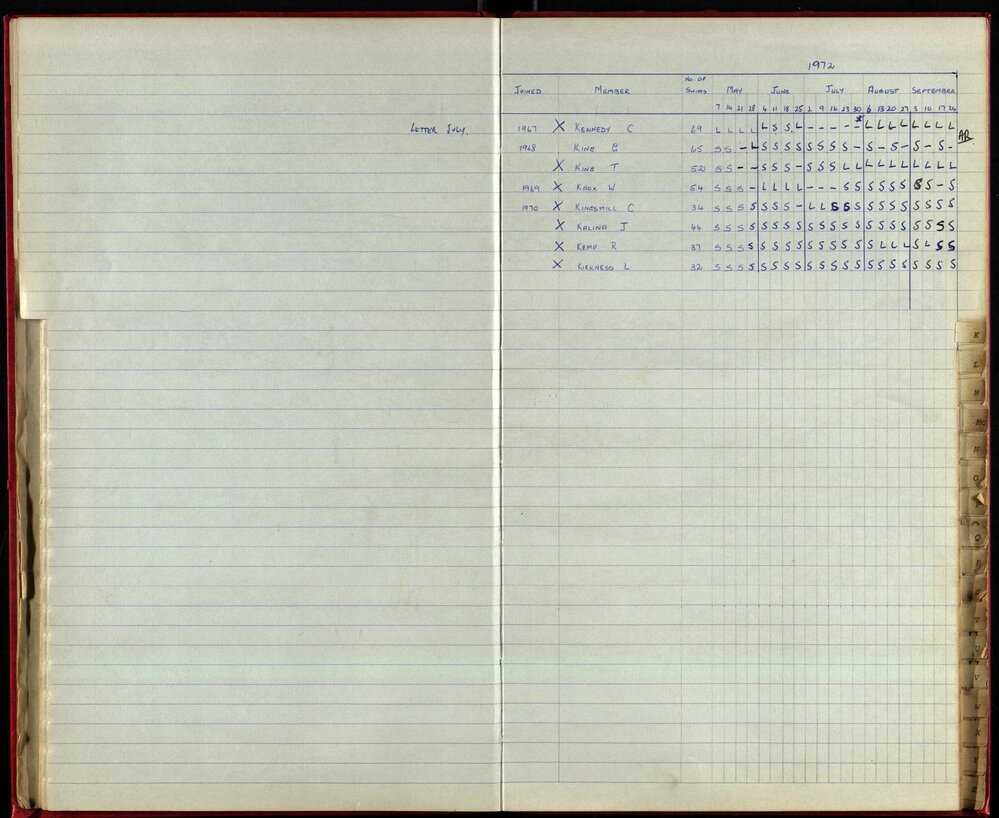 1972
JOINED MEMBER NO. OF SWIMS MAY JUNE JULY AUGUST SEPTEMBER
7 14 21 28 4 11 18 25 2 9 16 23 30 6 13 20 27 3 10 17 24
LETTER JULY. 1967 X KENNEDY C 69 L L L L L S S L - - - - - L L L L L L L L
1968 KING B 65 S S - L S S S S S S S S - S - S - S - S - AR
X KING T 52 S S - - S S S - S S S L L L L L L L L L L
1969 X KNOX W 54 S S S - L L L L - - - S S S S S S S S - S
1970 X KINGSMILL C 34 S S S S S S S - L L S S S S S S S S S S S
X KALINA J 44 S S S S S S S S S S S S S S S S S S S S S
X KEMP R 37 S S S S S S S S S S S S S S L L L S L S S
X KIRKNESS L 32 S S S S S S S S S S S S S S S S S S S S S
K
L
M
Mc
N
O
P
Q
R
S
T
U
V
W
X
Y
Z